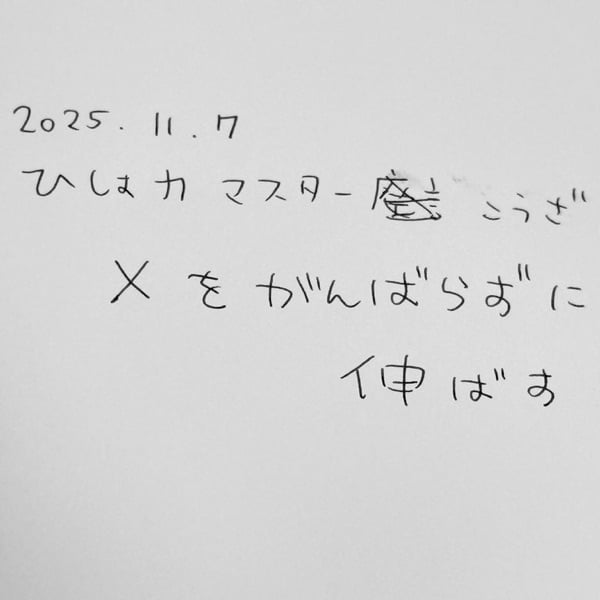 2025.11.7
ひしょ力 マスター こうざ
X を がんばらずに
伸ばす